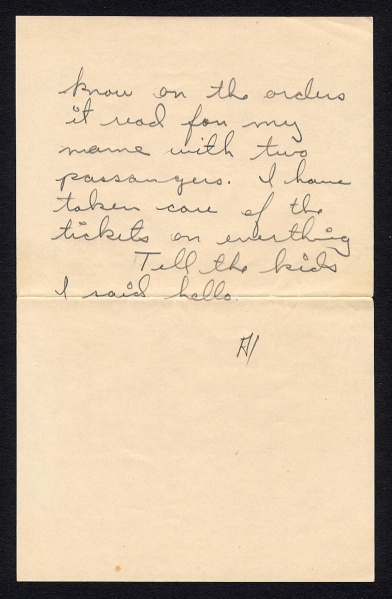 know on the orders
it read for my
name with two
passangers. I have
taken care of the
tickets on everthing
Tell the kids
I said hello.
Al